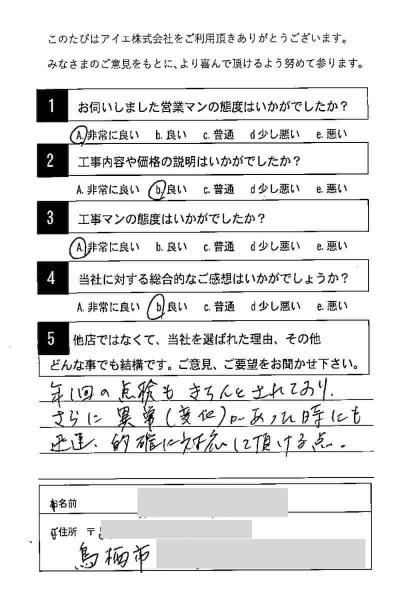 このたびはアイエ株式会社をご利用頂きありがとうございます。
みなさまのご意見をもとに、より喜んで頂けるよう努めて参ります。
1 お伺いしました営業マンの態度はいかがでしたか？
A.非常に良い b.良い c.普通 d少し悪い e.悪い
2 工事内容や価格の説明はいかがでしたか？
A.非常に良い b.良い c.普通 d少し悪い e.悪い
3 工事マンの態度はいかがでしたか？
A.非常に良い b.良い c.普通 d少し悪い e.悪い
4 当社に対する総合的なご感想はいかがでしょうか？
A.非常に良い b.良い c.普通 d少し悪い e.悪い
5 他店ではなくて、当社を選ばれた理由、その他
どんな事でも結構です。ご意見、ご要望をお聞かせ下さい。
年1回の点検もきちんとされており、
さらに異常(変化)があった時にも
迅速、的確に対応して頂ける点。
お名前
ご住所 〒
鳥栖市